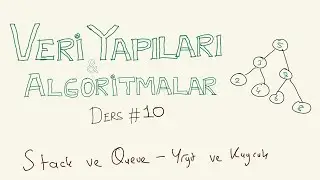 VERİ YAPILARI
&
ALGORİTMALAR
DERS #10
Stack ve Queue - Yığıt ve Kuyruk